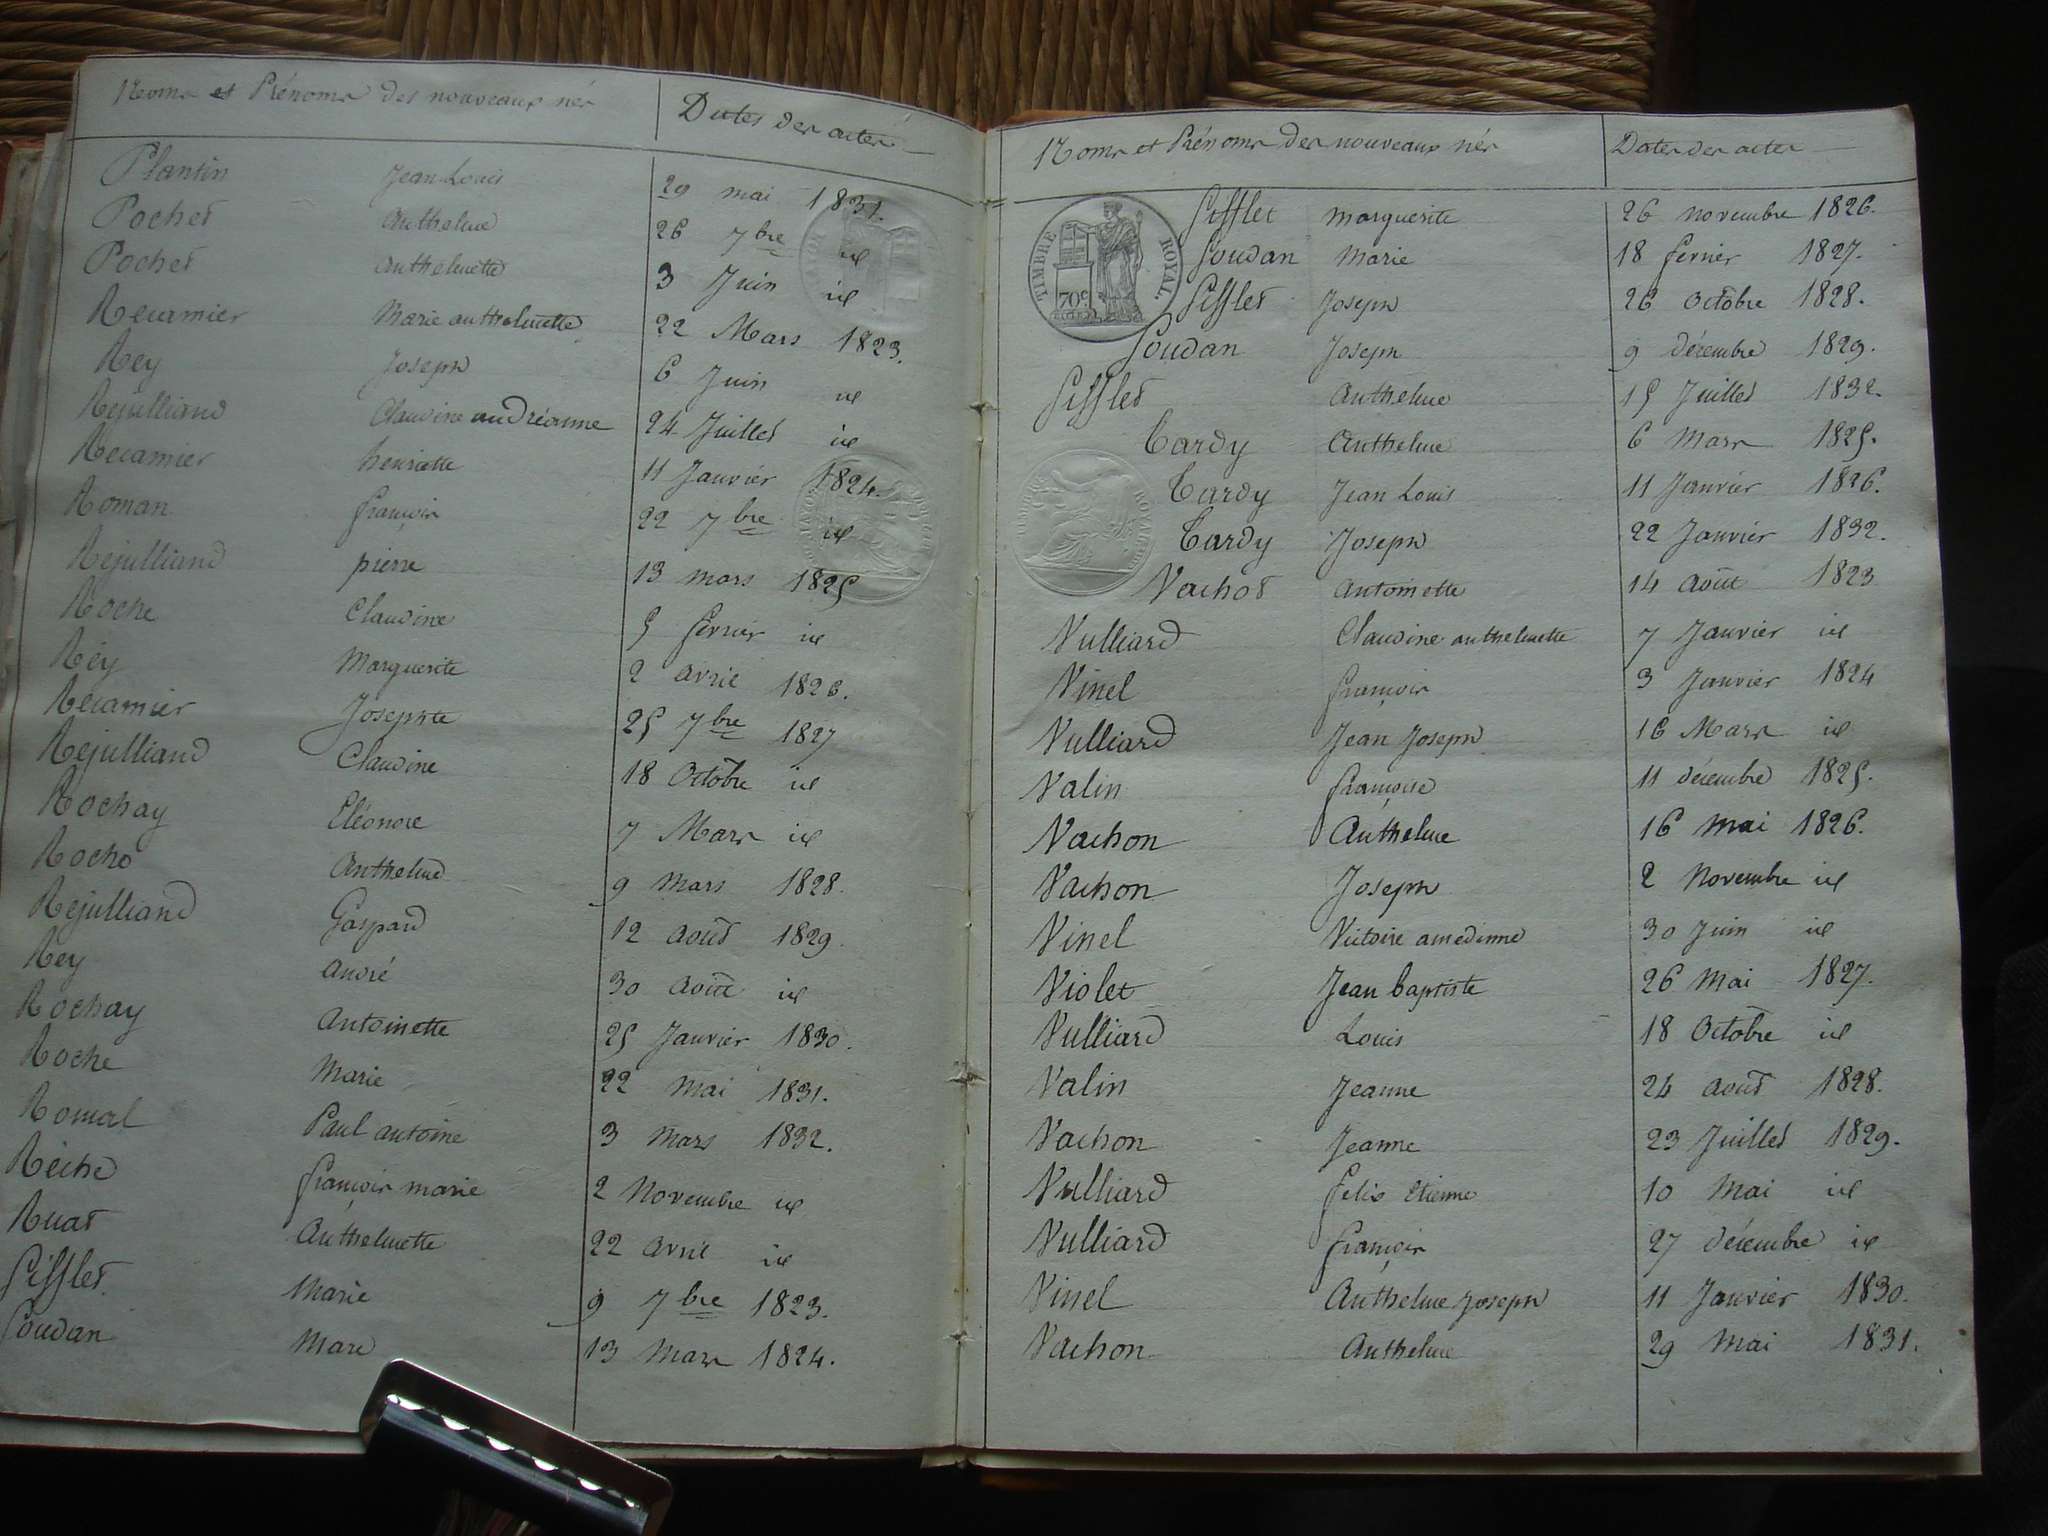 Noms et Prénoms des nouveaux nés Dates des actes
Plantin Jean Louis 29 mai 1831.
Pochet Anthelme 26 7bre id
Pochet Anthelmette 3 Juin id
Recamier Marie anthelmette 22 Mars 1823.
Rey Joseph 6 Juin id
Rejulliand Claudine andréanne 24 Juillet id
Recamier henriette 11 Janvier 1824.
Roman françois 22 7bre id
Rejulliand pierre 13 mars 1825
Roche Claudine 5 fevrier id
Réy Marguerite 2 avril 1826.
Récamier Josephte 25 7bre 1827
Rejulliand Claudine 18 Octobre id
Rochay Eléonore 7 Mars id
Roche Anthelme 9 Mars 1828.
Rejulliand Gaspard 12 août 1829.
Rey André 30 Août id
Rochay Antoinette 25 Janvier 1830.
Roche Marie 22 Mai 1831.
Paul antoine 3 Mars 1832.
Réche françois marie 2 Novembre id
Ruat Anthelmette 22 avril id
Sifflet Marie 9 7bre 1823.
Soudan Marc 13 Mars 1824.
Noms et Prénoms des nouveaux nés Dates des actes
TIMBRE ROYAL.
70c
Sifflet marguerite 26 novembre 1826.
Soudan Marie 18 fevrier 1827.
Sifflet Joseph 26 Octobre 1828.
Soudan Joseph 9 décembre 1829.
Sifflet Anthelme 15 Juillet 1832.
Tardy Anthelme 6 Mars 1825.
Tardy Jean Louis 11 Janvier 1826.
Tardy Joseph 22 Janvier 1832.
Vachot Antoinette 14 Août 1823
Vulliard Claudine anthelmette 7 Janvier id
Vinel françois 3 Janvier 1824
Vulliard Jean Joseph 16 Mars id
Valin françoise 11 décembre 1825.
Vachon Anthelme 16 Mai 1826.
Vachon Joseph 2 Novembre id
Vinel Victoire amedinne 30 Juin id
Violet Jean baptiste 26 Mai 1827.
Vulliard Louis 18 Octobre id
Valin Jeanne 24 août 1828.
Vachon Jeanne 23 Juillet 1829.
Vulliard felix etienne 10 Mai id
Vulliard françois 27 décembre id
Vinel Anthelme Joseph 11 Janvier 1830.
Vachon Anthelme 29 Mai 1831.